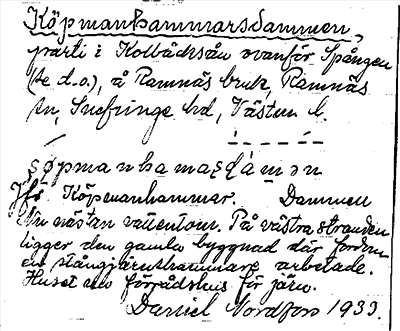 Köpmanhammarsdammen,
parti i Kolbäcksån ovanför Spången
(se d.o.), å Ramnäs bruk, Ramnäs
sn, Snefringe hd, Västm. l.
ʃø̣pmanhamaṣḍámən
Jfr Köpmanhammar. Dammen
nu nästan vattentom. På västra stranden
ligger den gamla byggnad där fordom
en stångjärnshammare arbetade.
Huset nu förrådshus för järn.
Daniel Nordfors 1933.